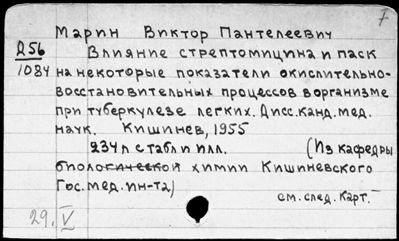 7
Марин Виктор Пантелеевич
Д56 Влияние стрептомицина и паск
1084 на некоторые показатели окислительно-
восстановительных процессов в организме
при туберкулезе легких. Дисс. канд. мед.
наук. Кишинев, 1955
234 л с табл и илл. (Из кафедры
биологической химии Кишиневского
Гос. мед. ин-та)
см. след. карт.
29. V